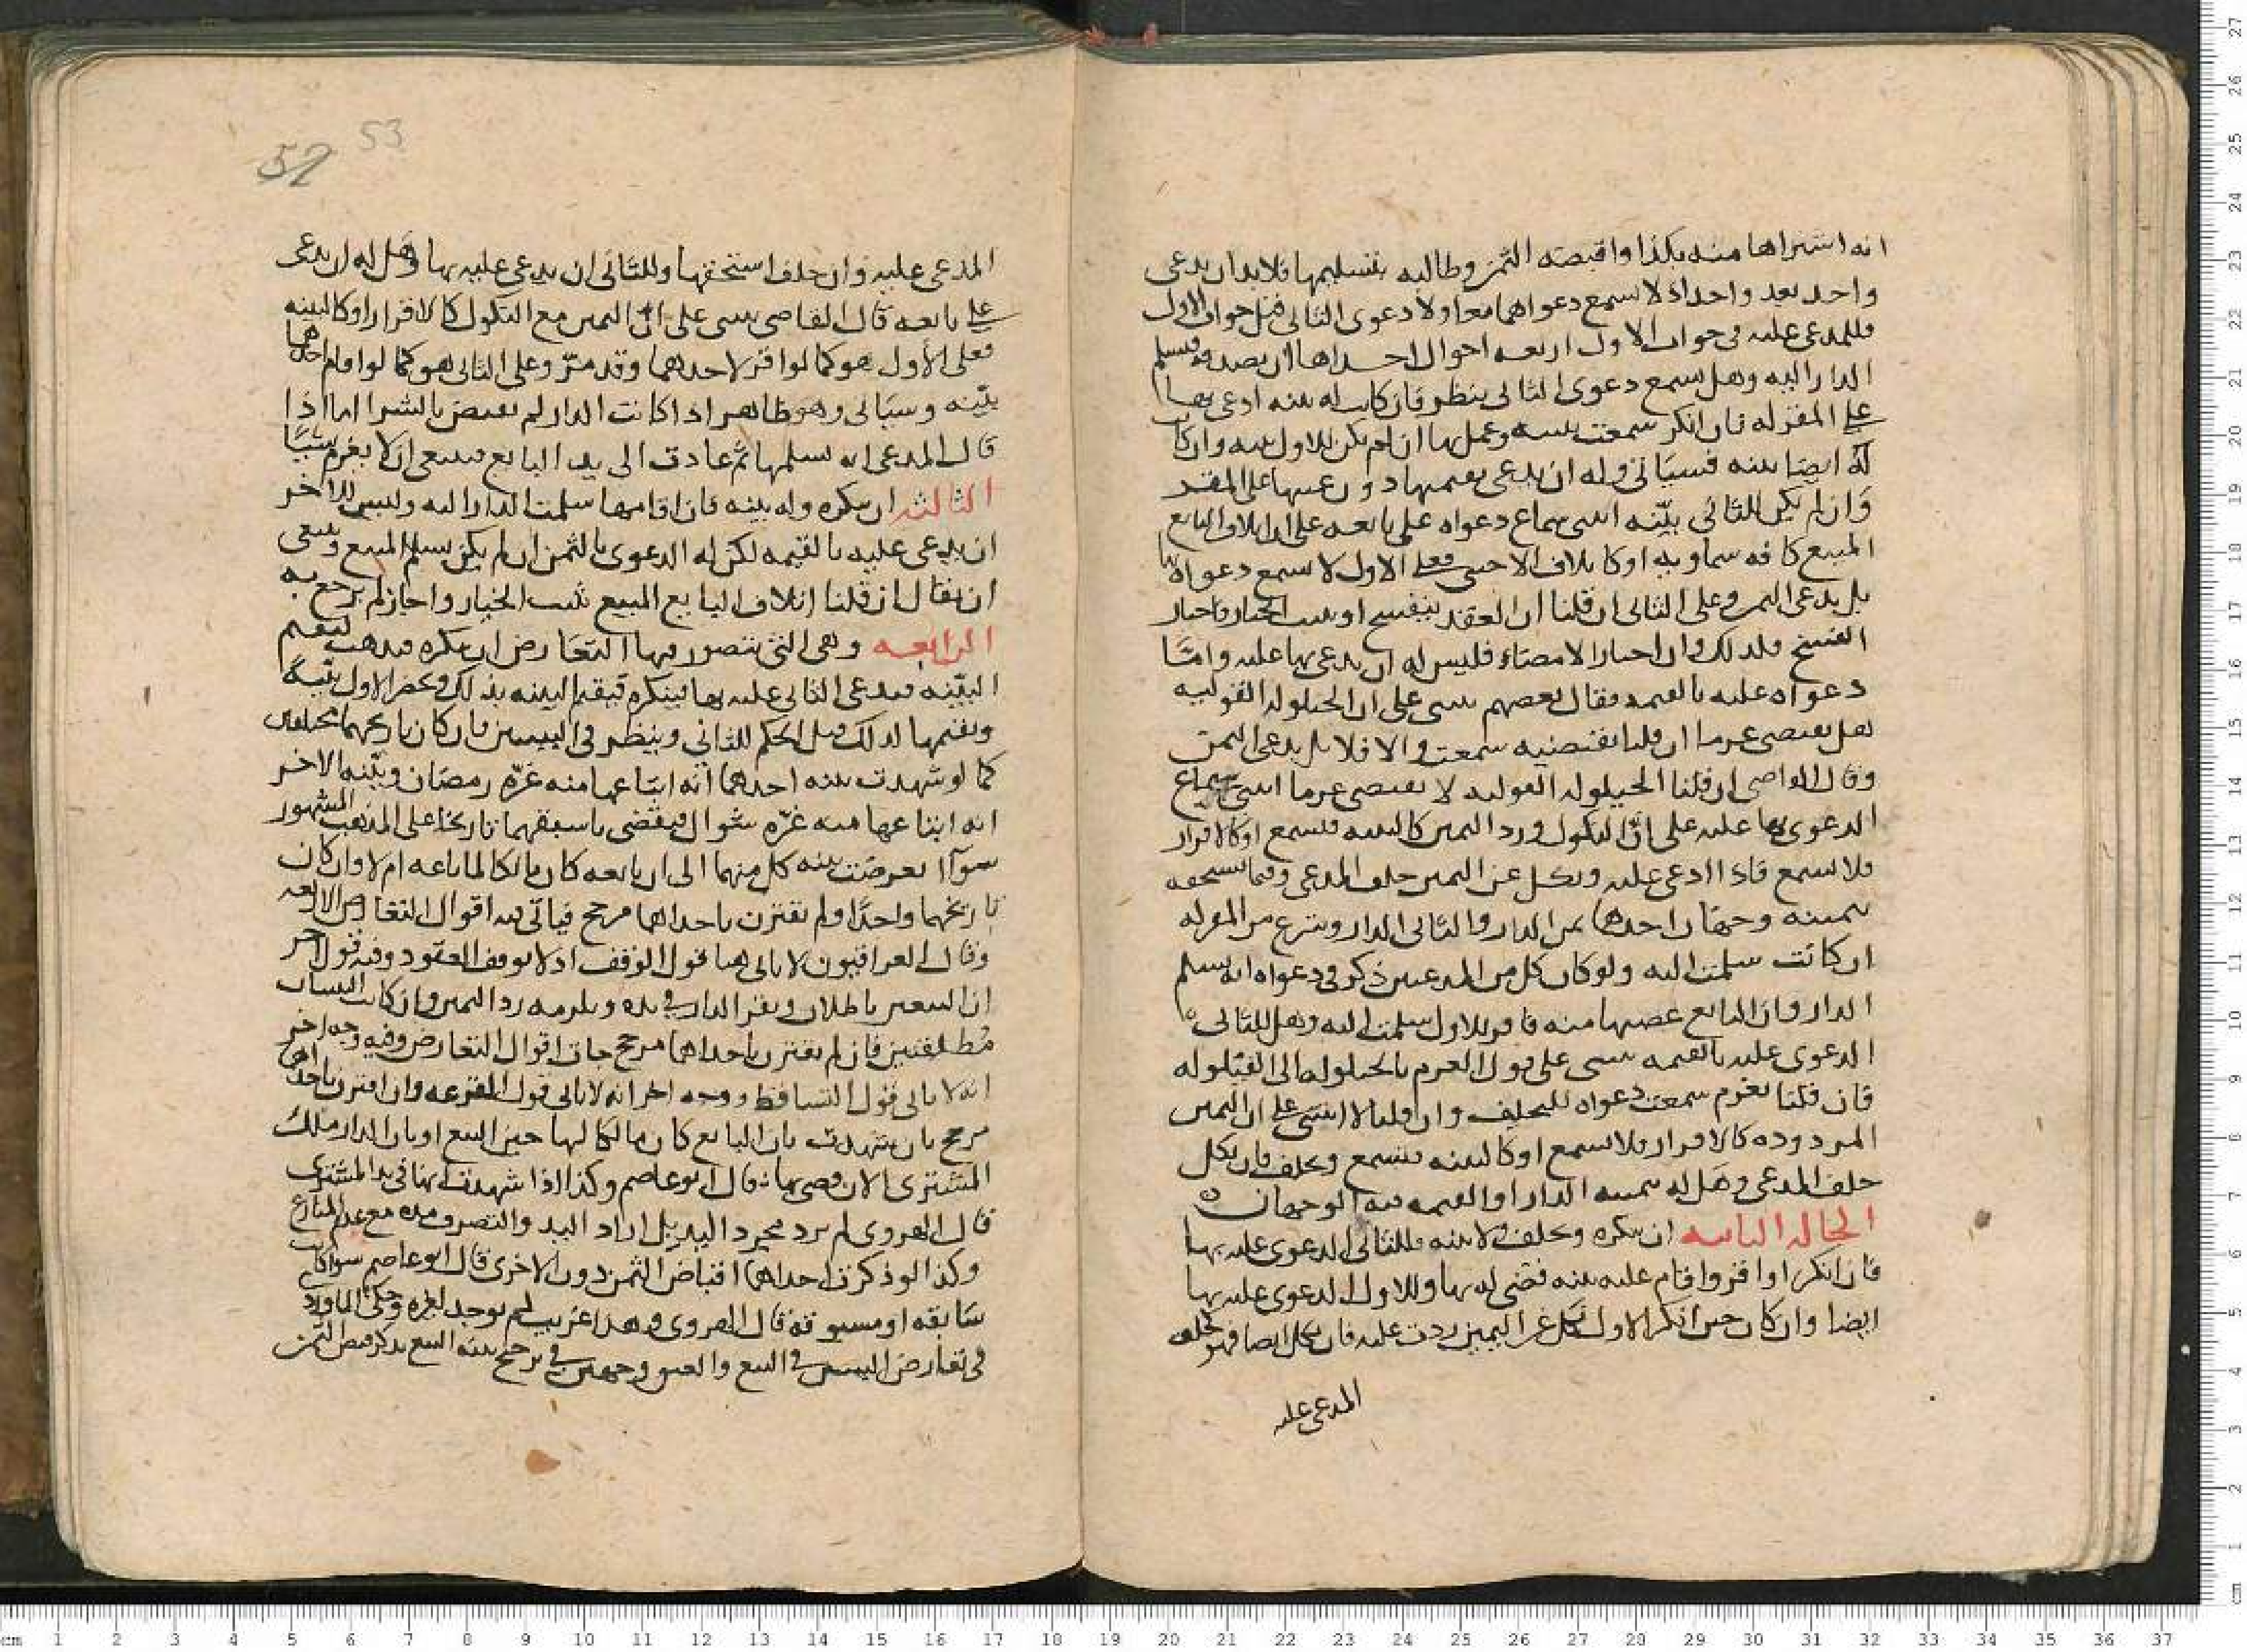 انه اشتراها منه بكذا واقبضه الثمن وطالبه بتسليمها فلابد ان يدعى
واحد بعد واحد اذ لا تسمع دعواهما معا ولا دعوى الثانى قبل جواب الاول
فللمدعى عليه فى جواب الاول اربعه احوال احداها ان يصدقه فيسلم
الدار اليه وهل تسمع دعوى الثانى ينظر فان كانت له بينه ادعى بها
على المقر له فان انكر سمعت بينته وعمل بها ان لم يكن للاول بينه وان كانت
له ايضا بينه فسياتى وله ان يدعى بقيمتها دون عينها على المقر
وان لم يكن للثانى بينه انبنى سماع دعواه على بايعه على ان اتلاف البايع
المبيع كافه سماويه او كاتلاف الاجنبى فعلى الاول لا تسمع دعواه بها
بل يدعى الثمن وعلى الثانى ان قلنا ان العقد ينفسخ او يثبت الخيار فاختار
الفسخ فلذلك وان اختار الامضاء فليس له ان يدعى بها عليه واما
دعواه عليه بالقيمه فقال بعضهم ينبنى على ان الحيلوله القوليه
هل تقتضى غرما ان قلنا تقتضيه سمعت والا فلا بل يدعى الثمن
وقال القاضى ان قلنا الحيلوله القوليه لا تقتضى غرما انبنى سماع
الدعوى بها عليه على ان النكول ورد اليمين كالبينه فتسمع او كالاقرار
فلا تسمع فاذا ادعى عليه ونكل عن اليمين حلف المدعى وفيما يستحقه
بيمينه وجهان احدها ثمن الدار والثانى الدار وتنزع من المقر له
ان كانت سلمت اليه ولو كان كل من المدعيين ذكر فى دعواه انه تسلم
الدار وان البايع غصبها منه فاقر للاول سلمت اليه وهل للثانى
الدعوى عليه بالقيمه ينبنى على قول الغرم بالحيلوله الى القيلوله
فان قلنا يغرم سمعت دعواه للتحليف وان قلنا لا انبنى على ان اليمين
المردوده كالاقرار فلا تسمع او كالبينه فتسمع ويحلف فان نكل
حلف المدعى وهل له بيمينه الدار او القيمه فيه الوجهان ه
الحاله الثانيه ان ينكره ويحلف ولا بينه فللثانى الدعوى عليه بها
فان انكر او اقر واقام عليه بينه قضى له بها وللاول الدعوى عليه بها
ايضا وان كان حين انكر الاول نكل عن اليمين ردت عليه فان نكل ايضا فهو كحلف
المدعى عليه
53
52
المدعى عليه وان حلف استحقها وللثانى ان يدعى عليه بها وهل له ان يدعى
على بايعه قال القاضى ينبنى على ان اليمين مع النكول كالاقرار او كالبينه
فعلى الاول هو كما لو اقر لاحدهما وقد مر وعلى الثانى هو كما لو اقام احدهما
بينه وسياتى وهو ظاهر اذا كانت الدار لم تقبض بالشرا اما اذا
قال المدعى انه تسلمها ثم عادت الى يد البايع فينبغى ان لا يغرم شيا
الثالثه ان ينكره وله بينه فان اقامها سلمت الدار اليه وليس للاخر
ان يدعى عليه بالقيمه لكن له الدعوى بالثمن ان لم يكن تسلم المبيع وينبغى
ان يقال ان قلنا اتلاف البايع المبيع يثبت الخيار واجاز لم يرجع به
الرابعه وهى التى يتصور فيها التعارض ان ينكره فيذهب ليقيم
البينه فيدعى الثانى عليه بها فينكره فيقيم البينه بذلك ويحضر الاول بينه
ويقيمها لذلك قبل الحكم للثانى وينظر فى البينتين فان كان تاريخهما مختلفين
كما لو شهدت بينه احدهما انه ابتاعها منه غرة رمضان وبينه الاخر
انه ابتاعها منه غرة شوال فيقضى باسبقهما تاريخا على المذهب المشهور
سوآا تعرضت بينه كل منهما الى ان بايعه كان مالكا لما باعه ام لا وان كان
تاريخهما واحدا ولم يقترن باحداهما مرجح فياتى فيه اقوال التعارض الاربعه
وقال العراقيون لا ياتى هنا قول الوقف اذ لا توقف العقود وفيه قول اخر
ان البيعين باطلان وتقر الدار فى يده ويلزمه رد الثمن وان كانت البينتان
مطلقتين فان لم يقترن باحداهما مرجح جات اقوال التعارض وفيه وجه اخر
انه لا ياتى قول التساقط ووجه اخر انه لا ياتى قول القرعه وان اقترن باحداهما
مرجح بان شهدت بان البايع كان مالكا لها حين البيع او بان الدار ملك
المشترى الان قضى بها قال ابو عاصم وكذا اذا شهدت انها فى يد المشترى
قال الهروى لم يرد مجرد اليد بل اراد اليد والتصرف مده مع عدم المنازع
وكذا لو ذكرت احداهما اقباض الثمن دون الاخرى قال ابو عاصم سوا كانت
سابقه او مسبوقه قال الهروى وهذا غريب لم يوجد لغيره وحكى الماوردى
فى تعارض البينتين فى البيع والعتق وجهين فى ترجيح بينه البيع بذكر قبض الثمن